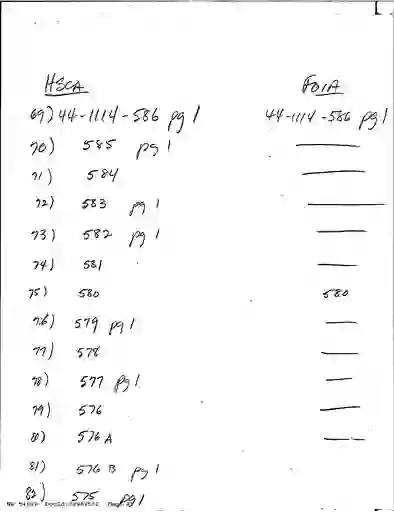 HSCA FOIA
69) 44-1114-586 pg 1 44-1114-586 pg 1
70) 585 pg 1 —
71) 584 —
72) 583 pg 1 —
73) 582 pg 1 —
74) 581 —
75) 580 580
76) 579 pg 1 —
77) 578 —
78) 577 pg 1 —
79) 576 —
80) 576 A —
81) 576 B pg 1
82) 575 pg 1